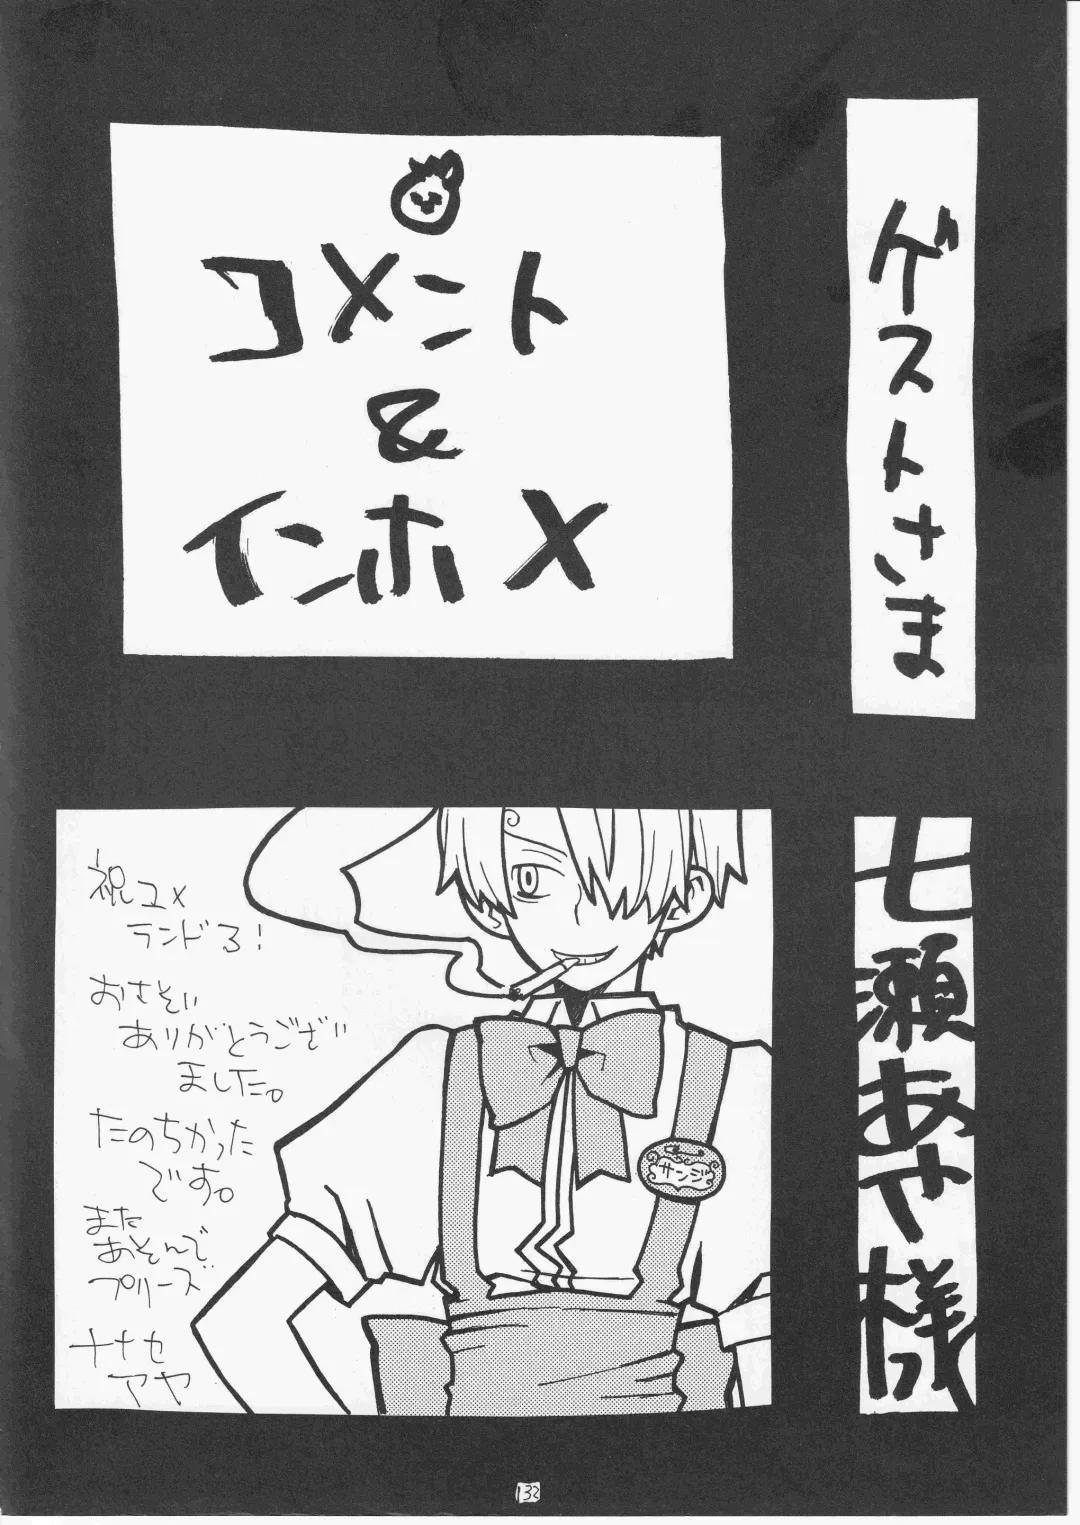 ゲストさま
コメント
&
インホメ
七瀬あや様
祝ユメ
ランド る!
おさそい
ありがとうござい
ました。
たのちかった
です。
また
あそんで
プリーズ
ナナセ
アヤ
サンジ
132